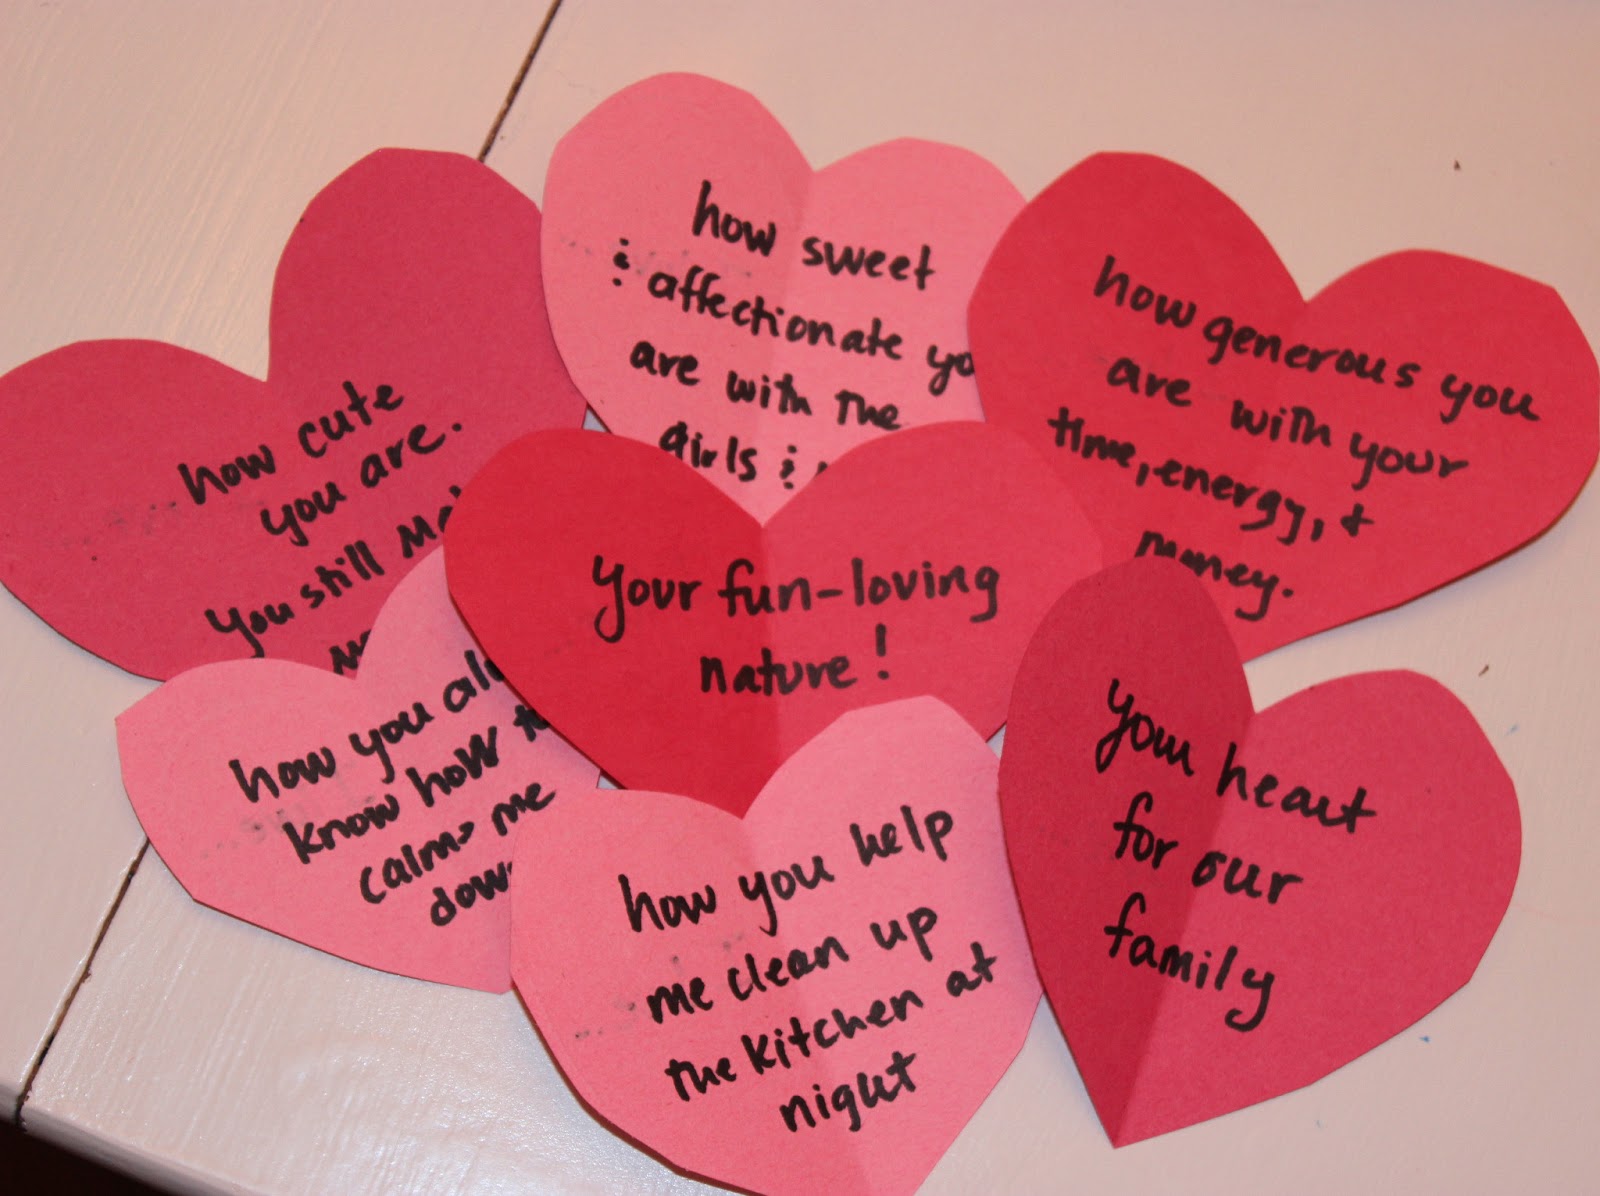 how sweet
& affectionate
are with the
girls &
how generous you
are with your
time, energy, +
money.
how cute
you are.
You still
your fun-loving
nature!
how you
know how
calm me
down
your heart
for our
family
how you help
me clean up
the kitchen at
night